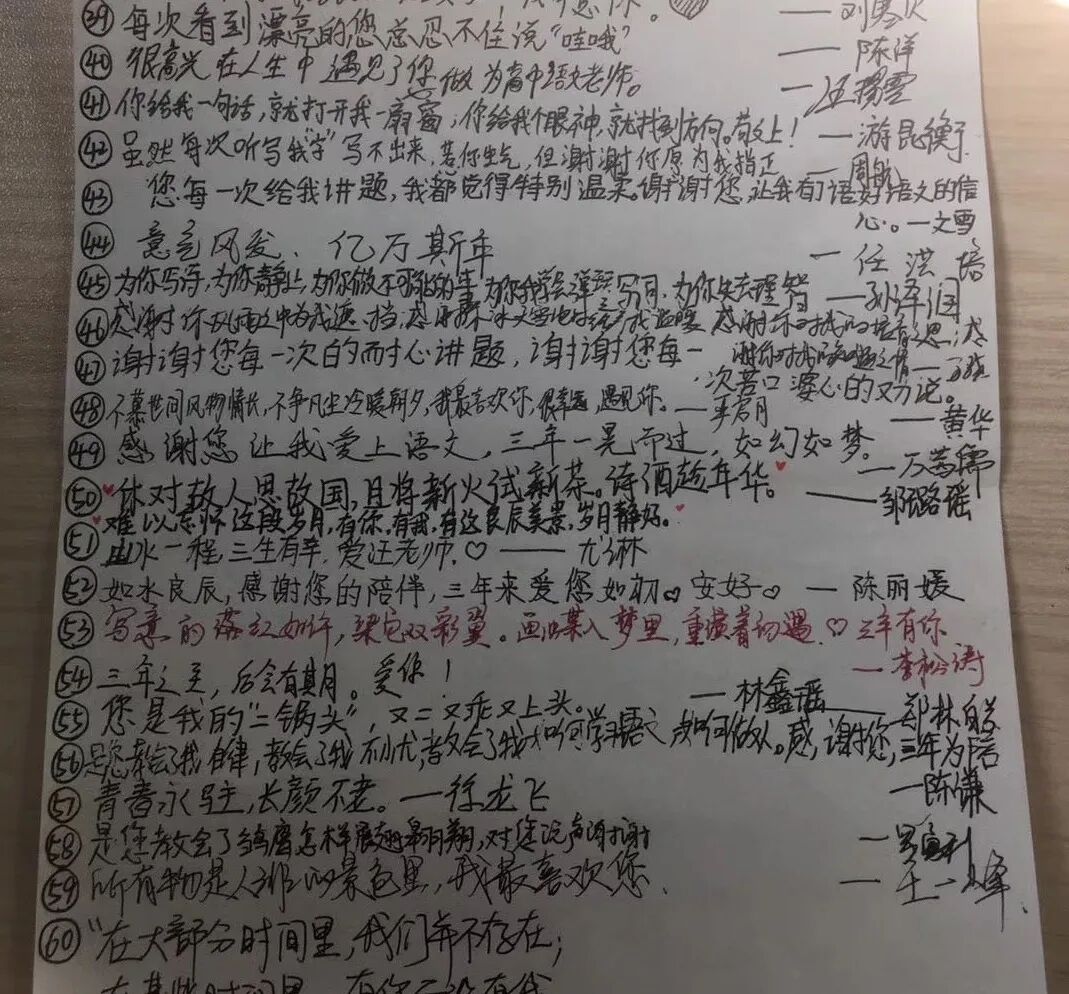 ㊴ 每次看到漂亮的您总忍不住说“哇哦”
㊵ 很高兴在人生中遇见了您做为高中语文老师。 —陈洋
㊶ 你给我一句话,就打开我一扇窗;你给我个眼神,就找到方向。敬上! —游昆衡
㊷ 虽然每次听写我“字”写不出来,惹你生气,但谢谢你愿为我指正
㊸ 您每一次给我讲题,我都觉得特别温柔。谢谢您,让我有了语好语文的信
心。—文雪
㊹ 意气风发、亿万斯年 —任洪培
㊺ 为你写诗,为你静止,为你做不可能的事 为你学会弹琴写词,为你失去理智 —孙泽国
㊻ 感谢你风雨中为我遮挡,感谢 冰天雪地 给我温暖 感谢你对我的培育之恩,感
谢你对我的 之情
㊼ 谢谢您每一次的耐心讲题,谢谢您每一
次苦口婆心的劝说。 —黄华
㊽ 不慕世间风物情长,不争凡尘冷暖朝夕,我最喜欢你,很幸运,遇见你。
㊾ 感谢您让我爱上语文,三年一晃而过,如幻如梦。
㊿ “休对故人思故国,且将新火试新茶。诗酒趁年华。” —邹璐瑶
难以忘怀这段岁月,有你,有我,有这良辰美景,岁月静好。
51 山水一程,三生有幸,爱汪老师.♡ —— 尤琳
52 如水良辰,感谢您的陪伴,三年来爱您如初。安好。 —陈丽媛
53 写意的落红如许,梁 双彩翼。画 某入梦里,重演着初遇.♡ 三年有你
—李松涛
54 三年之王,后会有期。爱您! —林鑫谣
55 您是我的“二锅头”,又二又乖又上头。
56 是您教会了我自律,教会了我 忧,教会了我如何学习语文 如何做人。感谢您,三年为陪
—陈谦
57 青春永驻,长颜不老。—徐龙飞
58 是您教会了雏鹰怎样展翅翱翔,对您说声谢谢
59 所有物是人非的景色里,我最喜欢您. —王一峰
60 “在大部分时间里,我们并不存在;